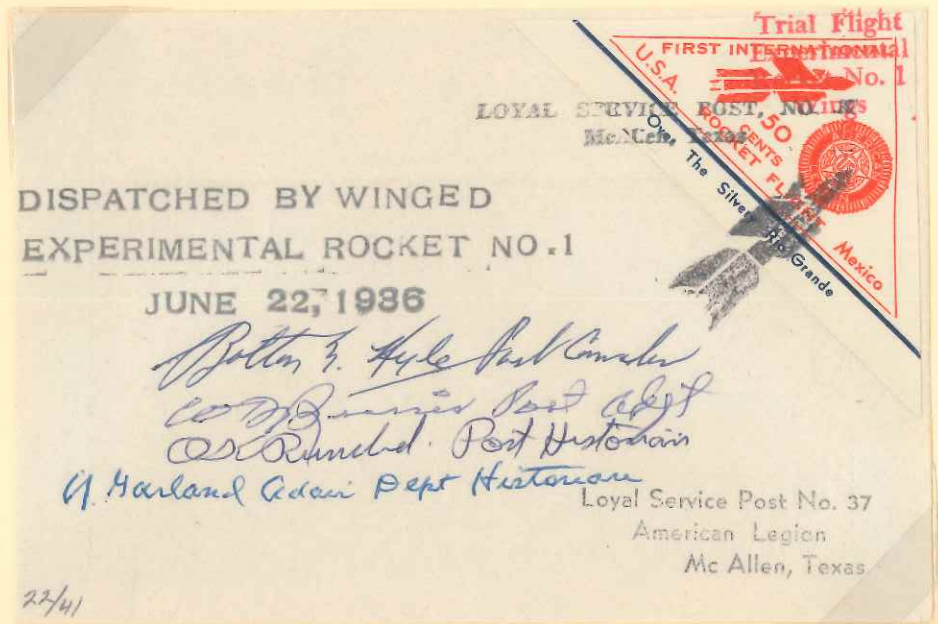 Trial Flight
Experimental
No. 1
Wings
FIRST INTERNATIONAL
U.S.A.
50
CENTS
ROCKET FLIGHT
Mexico
Over The Silvery Rio Grande
LOYAL SERVICE POST, NO. 37
McAllen, Texas
DISPATCHED BY WINGED
EXPERIMENTAL ROCKET NO.1
JUNE 22, 1936
Hyle Post
Post Adjt
Post Historian
Garland Adair Dept Historian
Loyal Service Post No. 37
American Legion
Mc Allen, Texas
22/41